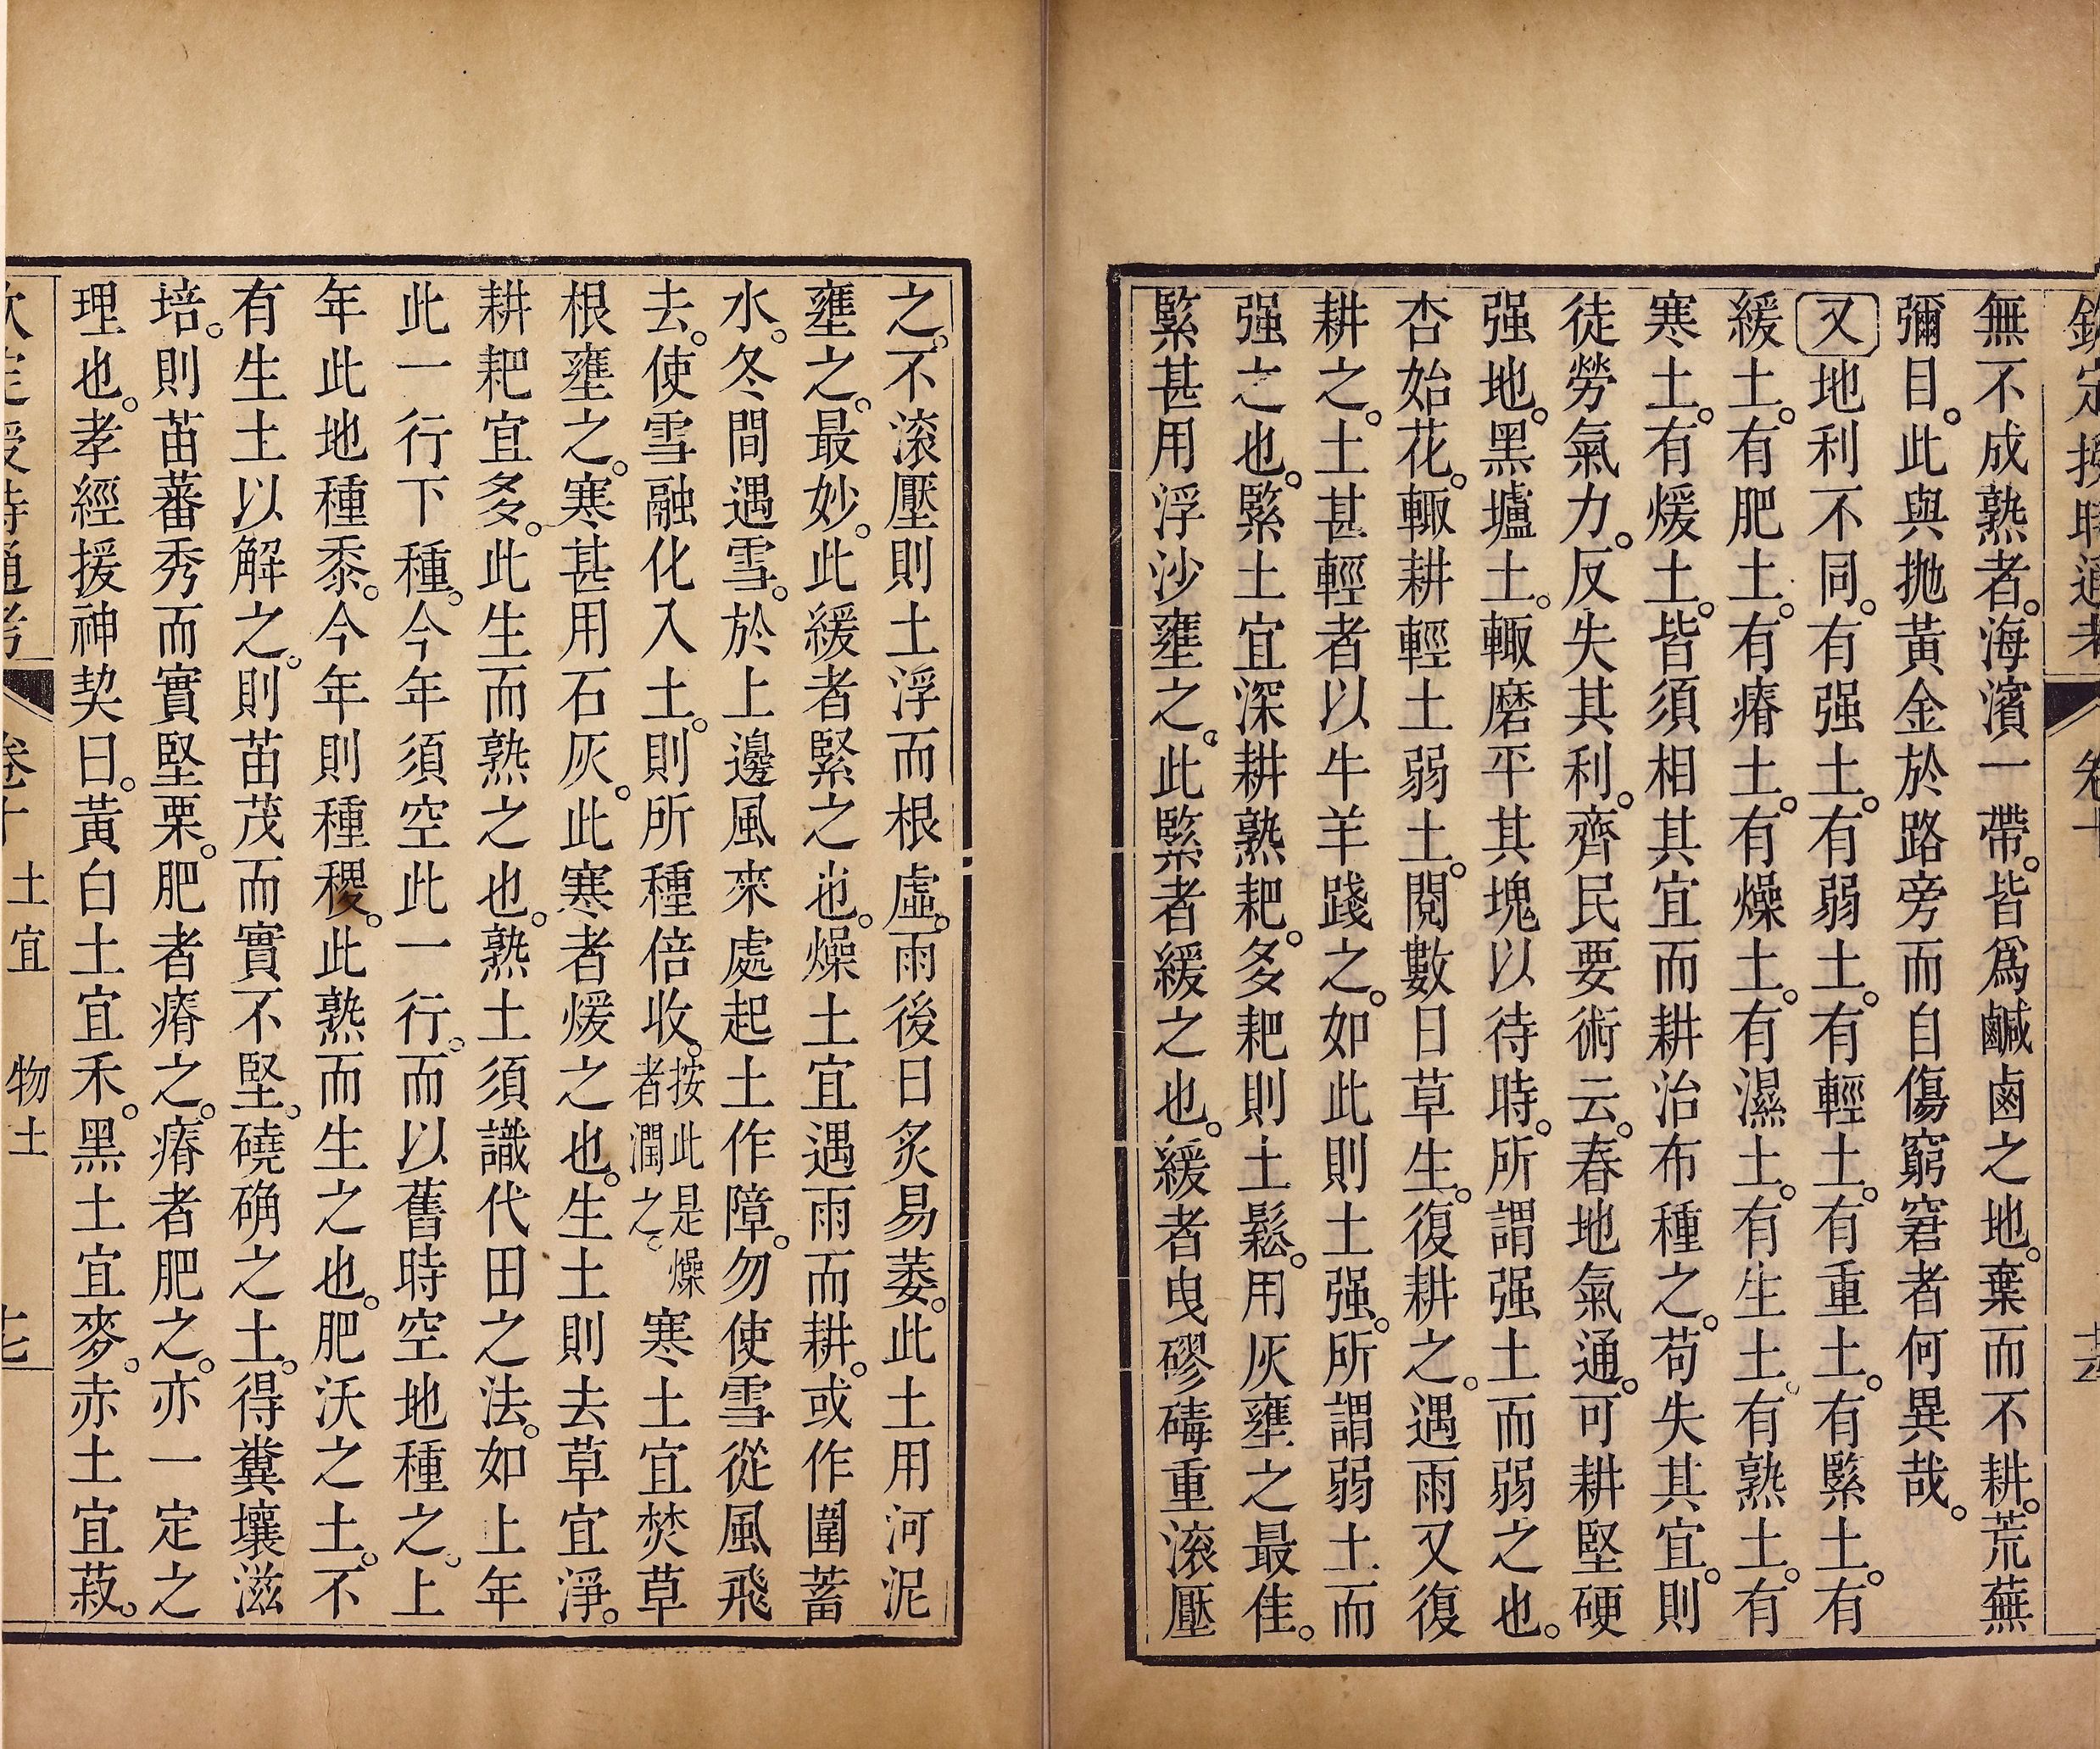 欽定授時通考 卷十
無不成熟者。海濱一帶。皆爲鹹鹵之地。棄而不耕。荒蕪
彌目。此與拋黃金於路旁而自傷窮窘者何異哉。
又地利不同。有强土。有弱土。有輕土。有重土。有緊土。有
緩土。有肥土。有瘠土。有燥土。有濕土。有生土。有熟土。有
寒土。有煖土。皆須相其宜而耕治布種之。苟失其宜。則
徒勞氣力。反失其利。齊民要術云。春地氣通。可耕堅硬
强地。黑壚土。輙磨平其塊以待時。所謂强土而弱之也。
杏始花。輙耕輕土弱土。閱數日草生。復耕之。遇雨又復
耕之。土甚輕者以牛羊踐之。如此則土强。所謂弱土而
强之也。緊土宜深耕熟耙。多耙則土鬆。用灰壅之最佳。
緊甚用浮沙壅之。此緊者緩之也。緩者曳磟碡重滚壓
之。不滚壓則土浮而根虛。雨後日炙易萎。此土用河泥
壅之。最妙。此緩者緊之也。燥土宜遇雨而耕。或作圍蓄
水。冬間遇雪。於上邊風來處起土作障。勿使雪從風飛
去。使雪融化入土。則所種倍收。按此是燥者潤之。寒土宜焚草
根壅之。寒甚用石灰。此寒者煖之也。生土則去草宜淨。
耕耙宜多。此生而熟之也。熟土須識代田之法。如上年
此一行下種。今年須空此一行。而以舊時空地種之。上
年此地種黍。今年則種稷。此熟而生之也。肥沃之土。不
有生土以解之。則苗茂而實不堅。磽确之土。得糞壤滋
培。則苗蕃秀而實堅栗。肥者瘠之。瘠者肥之。亦一定之
理也。孝經援神契曰。黃白土宜禾。黑土宜麥。赤土宜菽。
欽定授時通考 卷十 土宜 物土 七